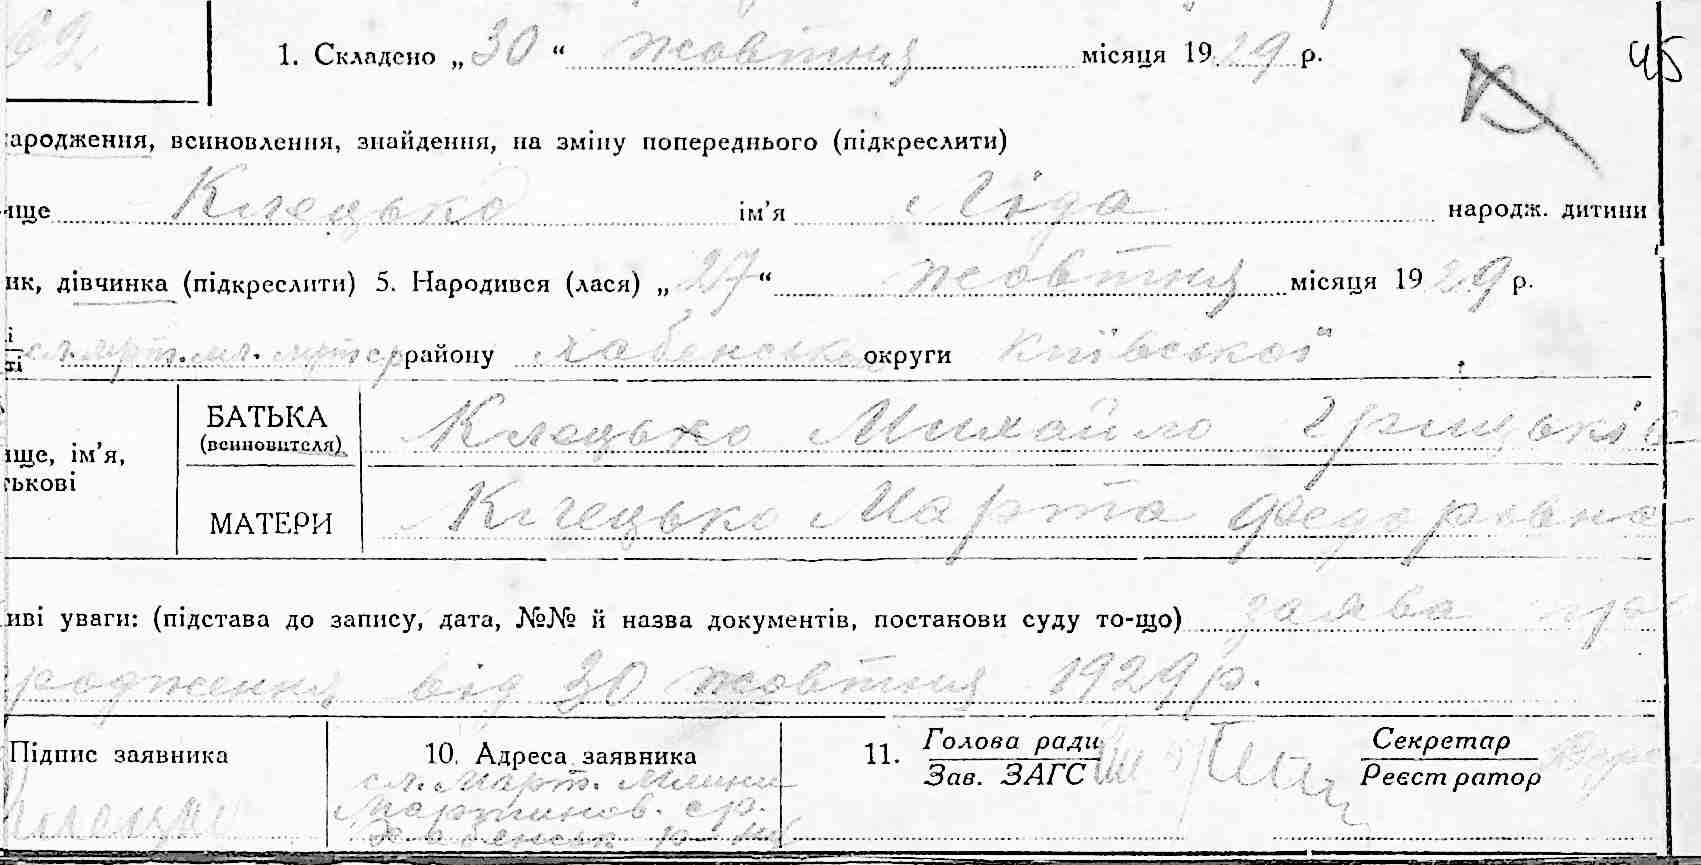 62
1. Складено „30“ жовтня місяця 1929 р.
45
ародження, всиновлення, знайдення, на зміну попереднього (підкреслити)
ище Клецько ім’я Ліда народж. дитини
ик, дівчинка (підкреслити) 5. Народився (лася) „27“ жовтня місяця 1929 р.
району Хабенсько округи Київської
ище, ім’я,
ькові
БАТЬКА
(всиновителя)
Клецько Михайло Грицьків
МАТЕРИ
Клецько Марта Федоровна
иві уваги: (підстава до запису, дата, №№ й назва документів, постанови суду то-що) заява про
родження від 30 жовтня 1929 р.
Підпис заявника
Клецько
10. Адреса заявника
сл. Март. Млини
Мартинов. с/р.
Хабенськ р-ну
11. Голова ради
Зав. ЗАГС
Секретар
Реєстратор